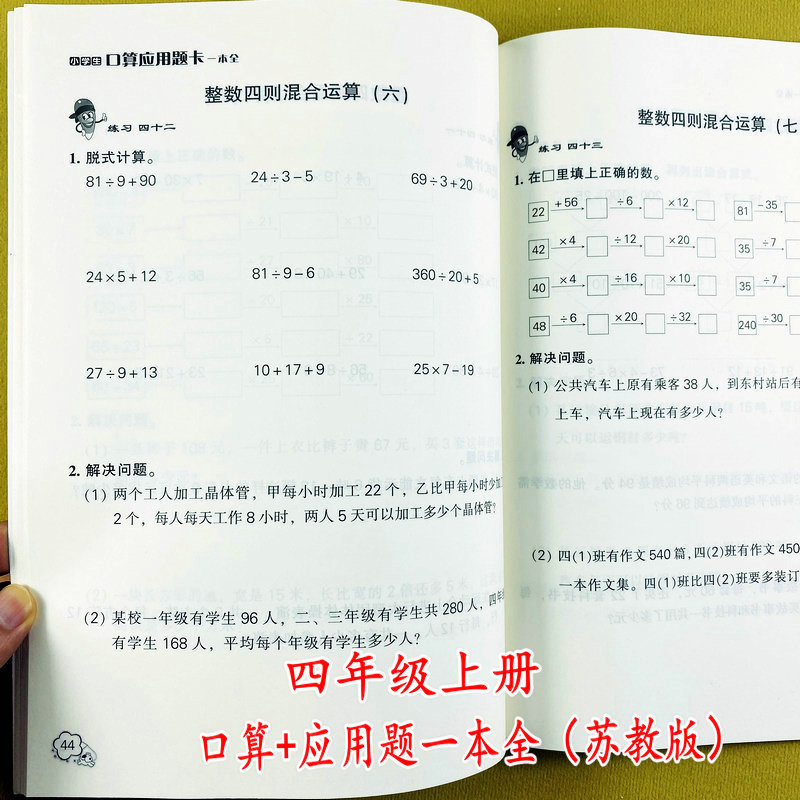 小学生 口算应用题卡 一本全
整数四则混合运算(六)
练习 四十二
1. 脱式计算。
81÷9+90 24÷3-5 69÷3+20
24×5+12 81÷9-6 360÷20+5
27÷9+13 10+17+9 25×7-19
2. 解决问题。
(1) 两个工人加工晶体管,甲每小时加工22个,乙比甲每小时
2个,每人每天工作8小时,两人5天可以加工多少个晶体管?
(2) 某校一年级有学生96人,二、三年级有学生共280人,四年
有学生168人,平均每个年级有学生多少人?
44
整数四则混合运算(七
练习 四十三
1. 在□里填上正确的数。
22 +56 □ ÷6 □ ×12 □ 81 -35
42 ×4 □ ÷12 □ ×20 □ 35 ÷7
40 ×4 □ ÷16 □ ×10 □ 35 ÷7
48 ÷6 □ ×20 □ ÷32 □ 240 ÷30
2. 解决问题。
(1) 公共汽车上原有乘客38人,到东村站后有
上车,汽车上现在有多少人?
(2) 四(1)班有作文540篇,四(2)班有作文450
一本作文集。四(1)班比四(2)班要多装订
四年级上册
口算+应用题一本全(苏教版)